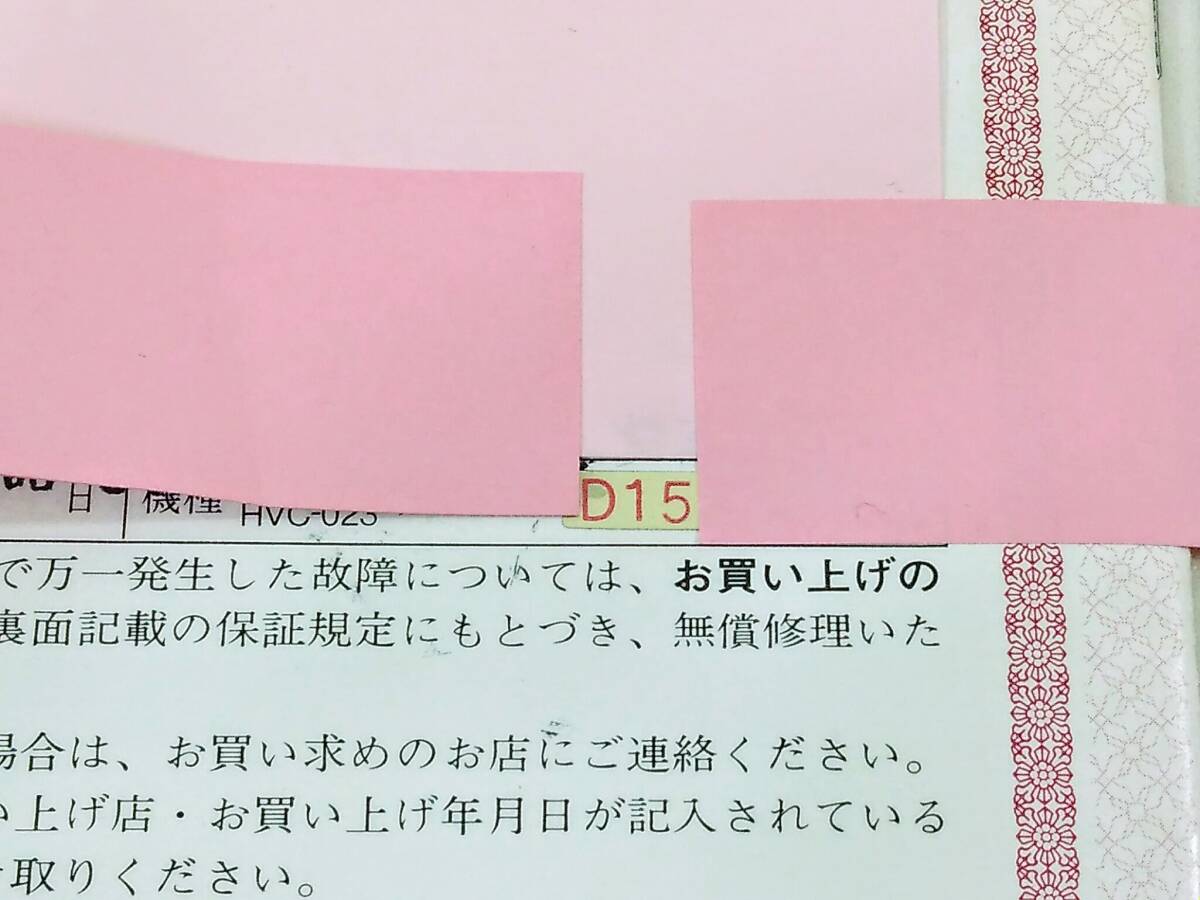 日 機種 HVC-023 D15
で万一発生した故障については、お買い上げの
裏面記載の保証規定にもとづき、無償修理いた
場合は、お買い求めのお店にご連絡ください。
い上げ店・お買い上げ年月日が記入されている
取りください。